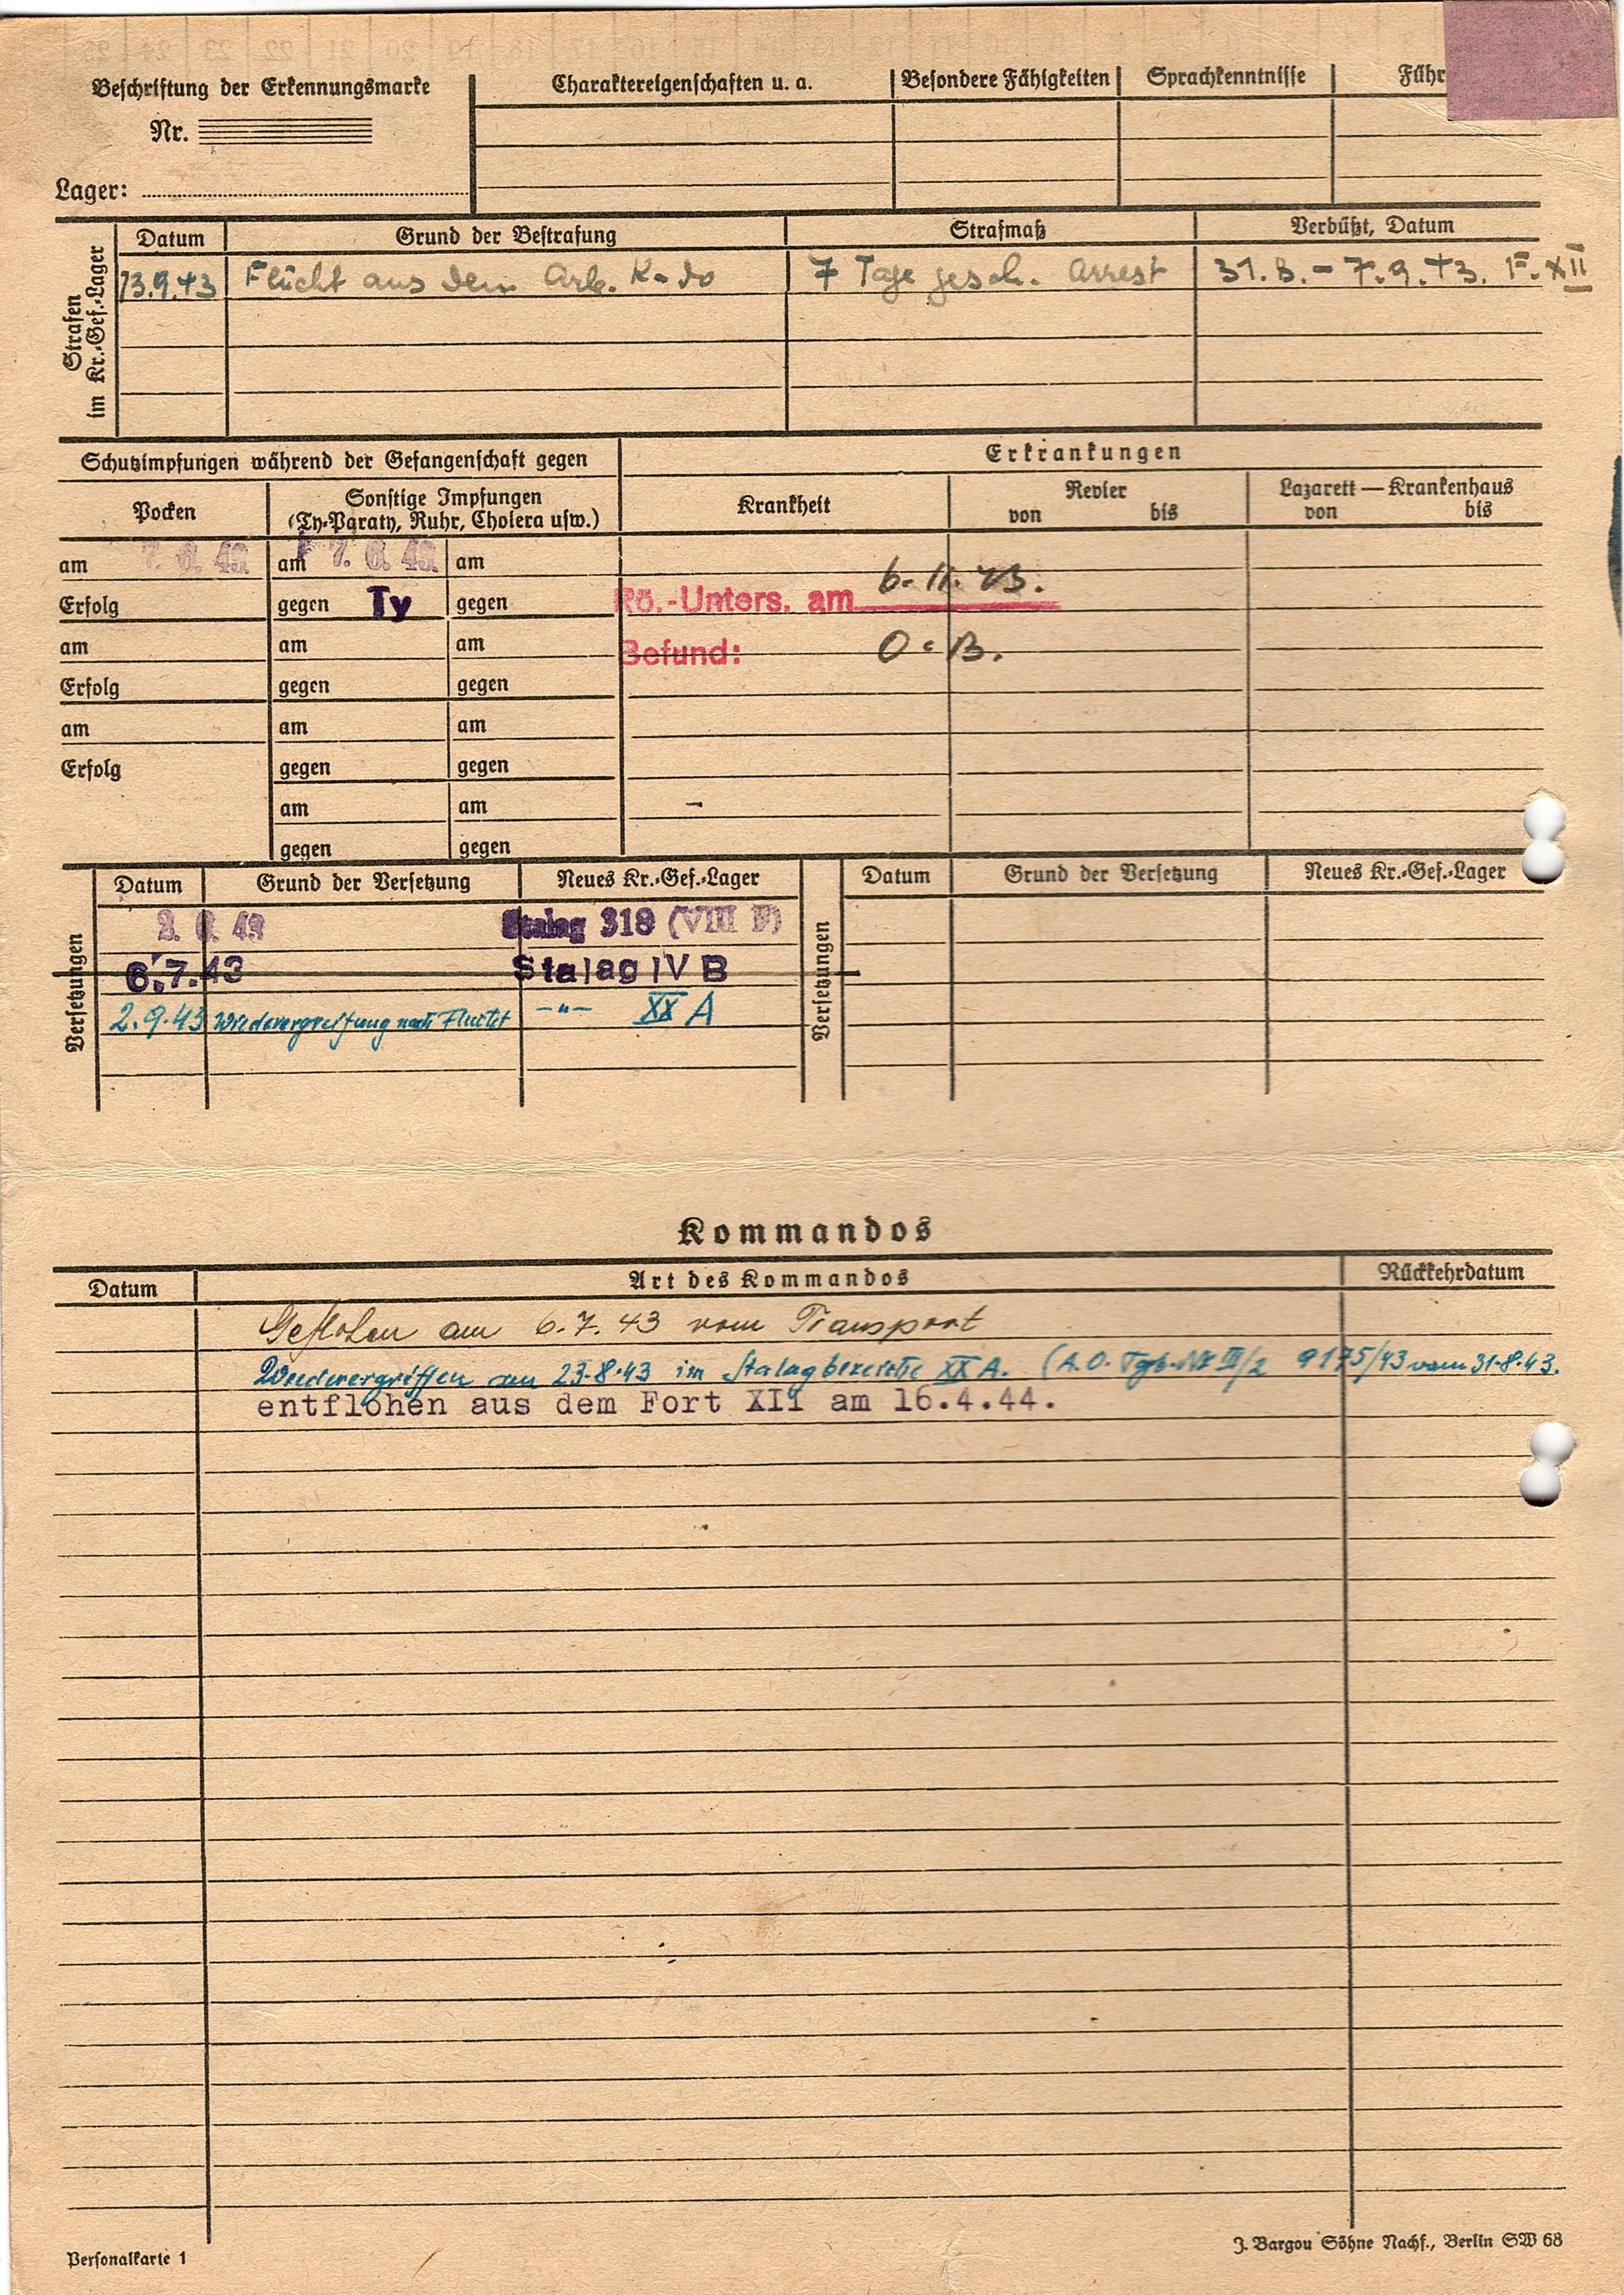 Beschriftung der Erkennungsmarke
Nr.
Lager:
Charaktereigenschaften u. a.
Besondere Fähigkeiten
Sprachkenntnisse
Führ
Strafen im Kr.-Gef.-Lager
Datum Grund der Bestrafung Strafmaß Verbüßt, Datum
13.9.43 Flucht aus dem Arb. K-do 7 Tage gesch. Arrest 31.8. - 7.9.43. F. XII
Schutzimpfungen während der Gefangenschaft gegen
Erkrankungen
Pocken
Sonstige Impfungen
(Ty-Paraty, Ruhr, Cholera usw.)
Krankheit
Revier
von bis
Lazarett — Krankenhaus
von bis
am 7. 6. 43. am 7. 6. 43. am
Erfolg gegen Ty gegen
Rö.-Unters. am 6. 11. 43.
am am am
Befund: O. B.
Erfolg gegen gegen
am am am
Erfolg gegen gegen
am am
gegen gegen
Versetzungen
Datum Grund der Versetzung Neues Kr.-Gef.-Lager
2. 6. 43 Stalag 318 (VIII F)
6.7.43 Stalag IV B
2.9.43 Wiederergreifung nach Flucht -"- XX A
Versetzungen
Datum Grund der Versetzung Neues Kr.-Gef.-Lager
Kommandos
Datum Art des Kommandos Rückkehrdatum
Geflohen am 6.7.43 vom Transport
Wiederergriffen am 23.8.43 im Stalagbereiche XX A. (A.O. Tgb. Nr III/2 9175/43 vom 31.8.43.
entflohen aus dem Fort XII am 16.4.44.
Personalkarte 1
J. Bargou Söhne Nachf., Berlin SW 68